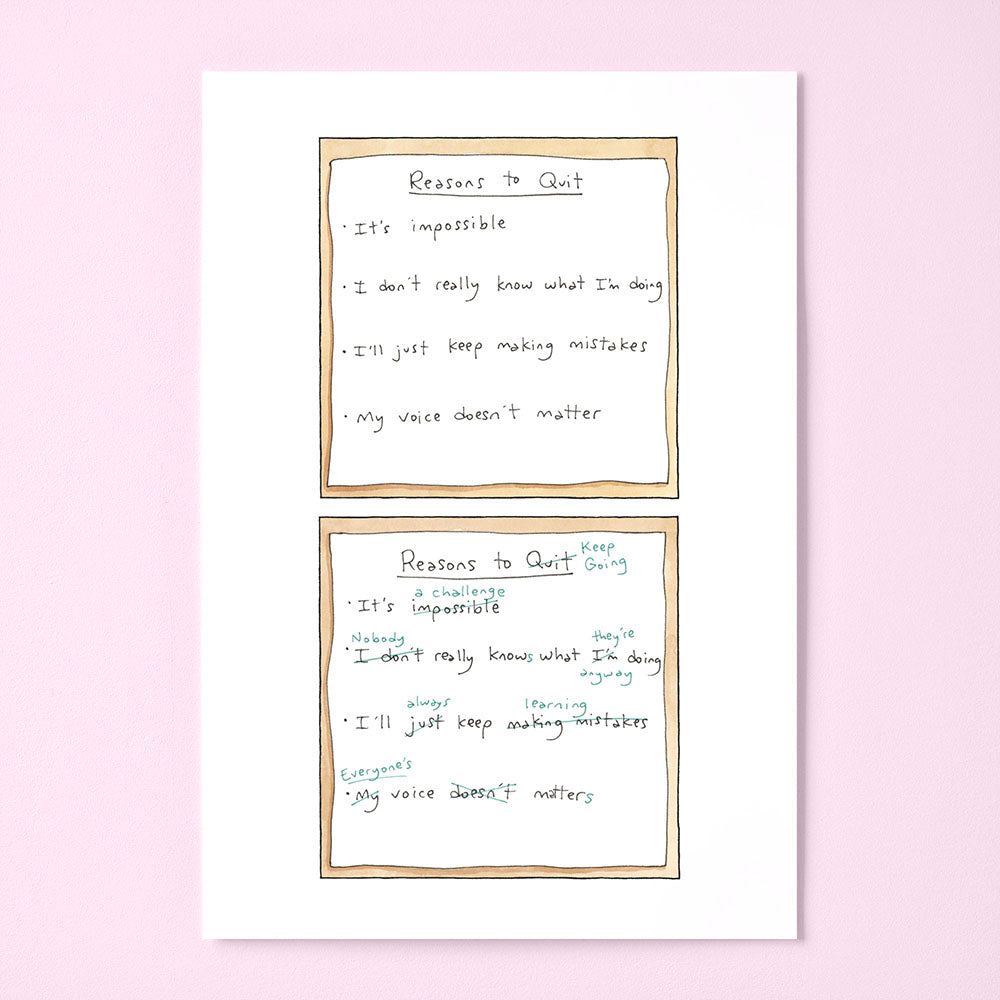 Reasons to Quit
· It's impossible
· I don't really know what I'm doing
· I'll just keep making mistakes
· My voice doesn't matter
Keep
Reasons to Quit Going
a challenge
· It's impossible
Nobody they're
· I don't really knows what I'm doing
anyway
always learning
· I'll just keep making mistakes
Everyone's
· My voice doesn't matters